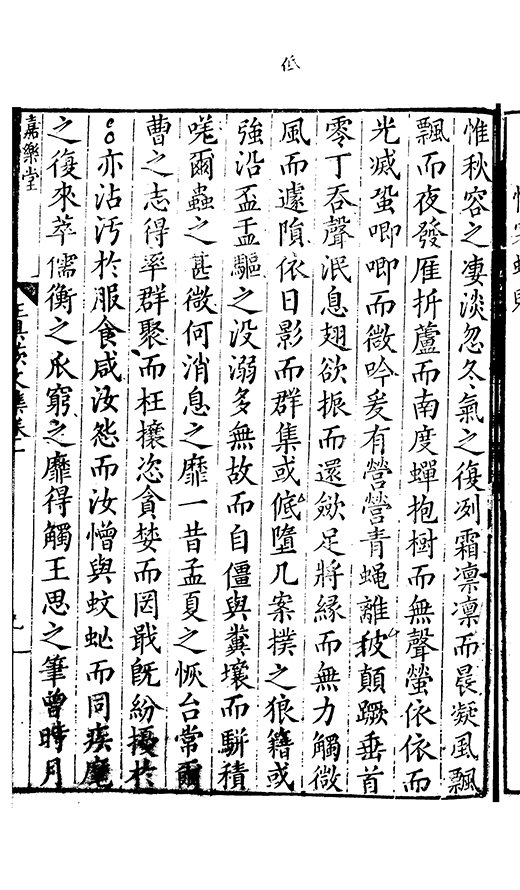 低
惟秋容之淒淡忽冬氣之復冽霜凛凛而晨凝風飄
飄而夜發雁折蘆而南度蟬抱樹而無聲螢依依而
光滅蛩唧唧而微吟爰有營營青蝇離披顛蹶垂首
零丁吞聲泯息翅欲振而還歛足將縁而無力觸微
風而遽隕依日影而群集或低墮几案撲之狼籍或
強沿盃盂驅之没溺多無故而自僵與糞壤而駢積
嗟爾蟲之甚微何消息之靡一昔孟夏之恢台常爾
曹之志得率群聚而枉攘恣貪婪而罔戢旣紛擾於
亦沾汚於服食咸汝怨而汝憎與蚊虻而同疾麾
之復來萃儒衡之瓜窮之靡得觸王思之筆曾時月
嘉樂堂